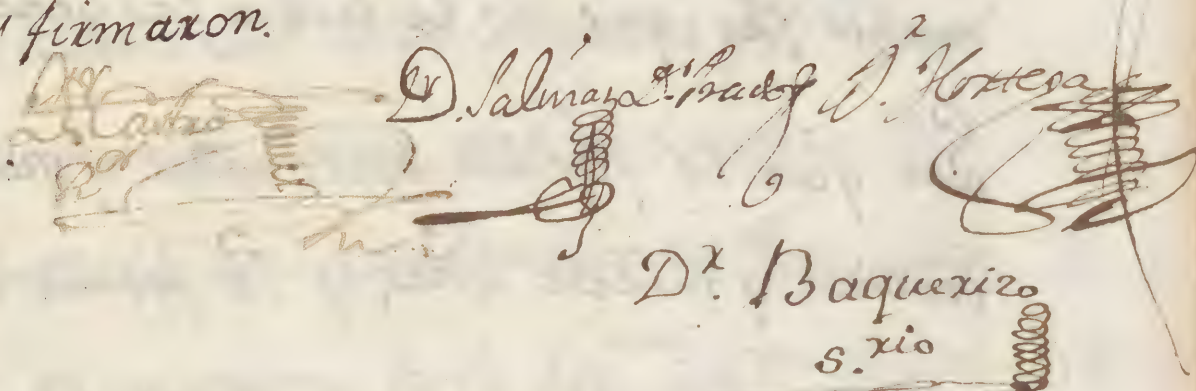 y firmaron.
Dr. Castro Dr. Salinas Dr. Prado Dr. Hortega
Ror
Dr. Baquerizo
s.rio